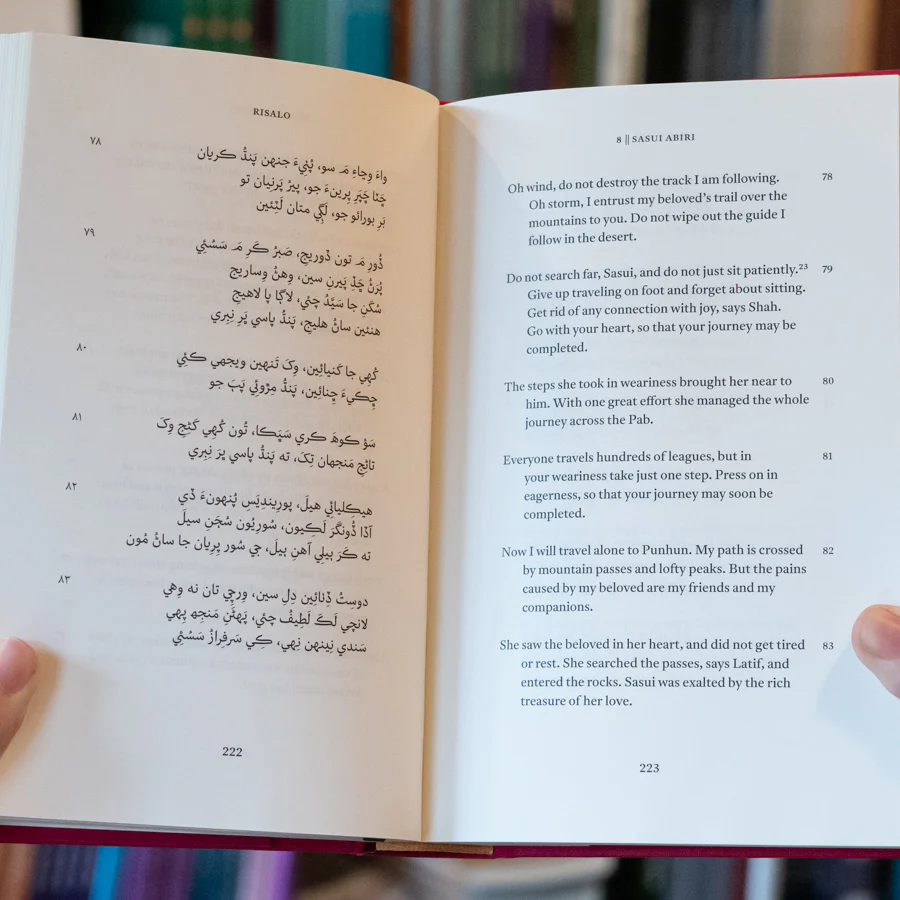 RISALO
٧٨
واءَ وِڃاءِ مَ سو، پُٺِيءَ جنهن پَنڌُ ڪريان
ڇَٽا ڇَپَرِ پِرينءَ جو، پيرُ پَرنيان تو
بَرِ بورائو جو، لَڳِي متان لَٽِئين
٧٩
ڏُورِ مَ تون ڏوريج، صَبرُ ڪَرِ مَ سَسُئِي
پُرَڻُ ڇَڏِ پَيرنِ سين، وِهڻُ وِساريج
سُکَنِ جا سَيَّدُ چَئي، لاڳا پا لاهيج
هنئين ساڻُ هليج، پَنڌُ پاسي ڀَرِ نِبِري
٨٠
ڪُهي جا ڪَنيائين، وِکَ تَنهين ويجهي ڪَئِي
ڇِڪيءَ ڇِنائين، پَنڌُ مِڙوئِي پَٻَ جو
٨١
سَؤ ڪوھَ ڪري سَڀَڪا، تُون ڪُهِي ڪَڻِج وِکَ
تاڻِج مَنجهان تِکَ، ته پَنڌُ پاسي ڀرَ نِبِري
٨٢
هيڪِليائِي هيلَ، پورِيندِيَسِ پُنهونءَ ڏي
آڏا ڏُونگَرَ لَڪِيون، سُورِيُون سُڄَنِ سيلَ
ته ڪَرَ ٻيلِي آهنِ ٻيلَ، جي سُور پِرِيان جا ساڻُ مُون
٨٣
دوسِتُ ڏِٺائِين دِلِ سين، وِرچِي تان نه وِهي
لانچي لَڪَ لَطِيفُ چَئي، پَهڻَنِ مَنجهِ پِهي
سَندي نِينهن نِهي، ڪِي سَرفِرازُ سَسُئِي
222
8 || SASUI ABIRI
Oh wind, do not destroy the track I am following. 78
Oh storm, I entrust my beloved's trail over the
mountains to you. Do not wipe out the guide I
follow in the desert.
Do not search far, Sasui, and do not just sit patiently.²³ 79
Give up traveling on foot and forget about sitting.
Get rid of any connection with joy, says Shah.
Go with your heart, so that your journey may be
completed.
The steps she took in weariness brought her near to 80
him. With one great effort she managed the whole
journey across the Pab.
Everyone travels hundreds of leagues, but in 81
your weariness take just one step. Press on in
eagerness, so that your journey may soon be
completed.
Now I will travel alone to Punhun. My path is crossed 82
by mountain passes and lofty peaks. But the pains
caused by my beloved are my friends and my
companions.
She saw the beloved in her heart, and did not get tired 83
or rest. She searched the passes, says Latif, and
entered the rocks. Sasui was exalted by the rich
treasure of her love.
223